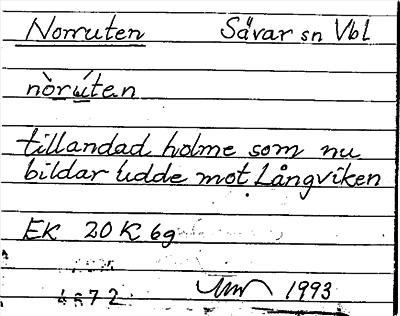 Norruten Sävar sn Vbl
nòrúten
tillandad holme som nu
bildar udde mot Långviken
EK 20 K 6g
1993